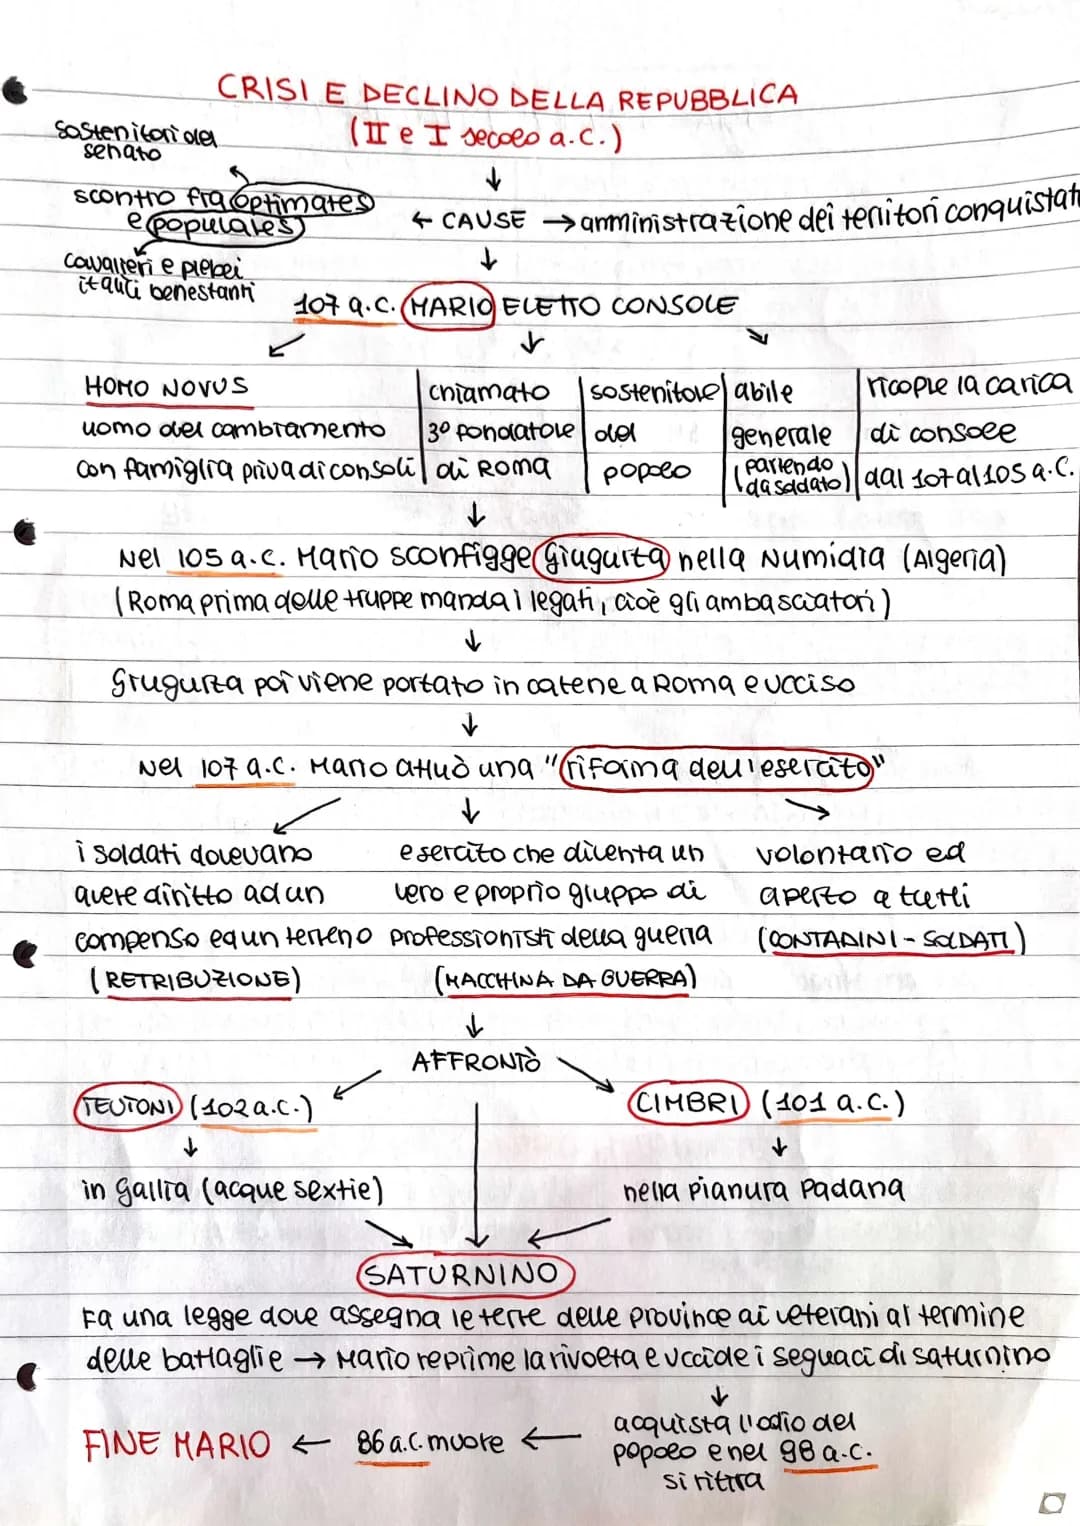 CRISI E DECLINO DELLA REPUBBLICA
(II e I secolo a.C.)
sostenitori del
senato
scontro fra optimates
e populares
cavalieri e plebei
italici benestanti
← CAUSE → amministrazione dei territori conquistati
107 a.C. MARIO ELETTO CONSOLE
HOMO NOVUS
uomo del cambiamento
con famiglia priva di consoli
chiamato
3° fondatore
di Roma
sostenitore
del
popolo
abile
generale
(partendo
da soldato)
ricopre la carica
di console
dal 107 al 105 a.C.
Nel 105 a.C. Mario sconfigge Giugurta nella Numidia (Algeria)
(Roma prima delle truppe manda i legati, cioè gli ambasciatori)
Grugurta poi viene portato in catene a Roma e ucciso
Nel 107 a.C. Mario attuò una "riforma dell'esercito"
i soldati dovevano
avere diritto ad un
compenso e a un terreno
(RETRIBUZIONE)
esercito che diventa un
vero e proprio gruppo di
professionisti della guerra
(MACCHINA DA GUERRA)
volontario ed
aperto a tutti
(CONTADINI - SOLDATI)
AFFRONTÒ
TEUTONI (102 a.C.)
in Gallia (acque sextie)
CIMBRI (101 a.C.)
nella Pianura Padana
SATURNINO
Fa una legge dove assegna le terre delle province ai veterani al termine
delle battaglie → Mario reprime la rivolta e uccide i seguaci di Saturnino
acquista l'odio del
popolo e nel 98 a.C.
si ritira
FINE MARIO ← 86 a.C. muore ←